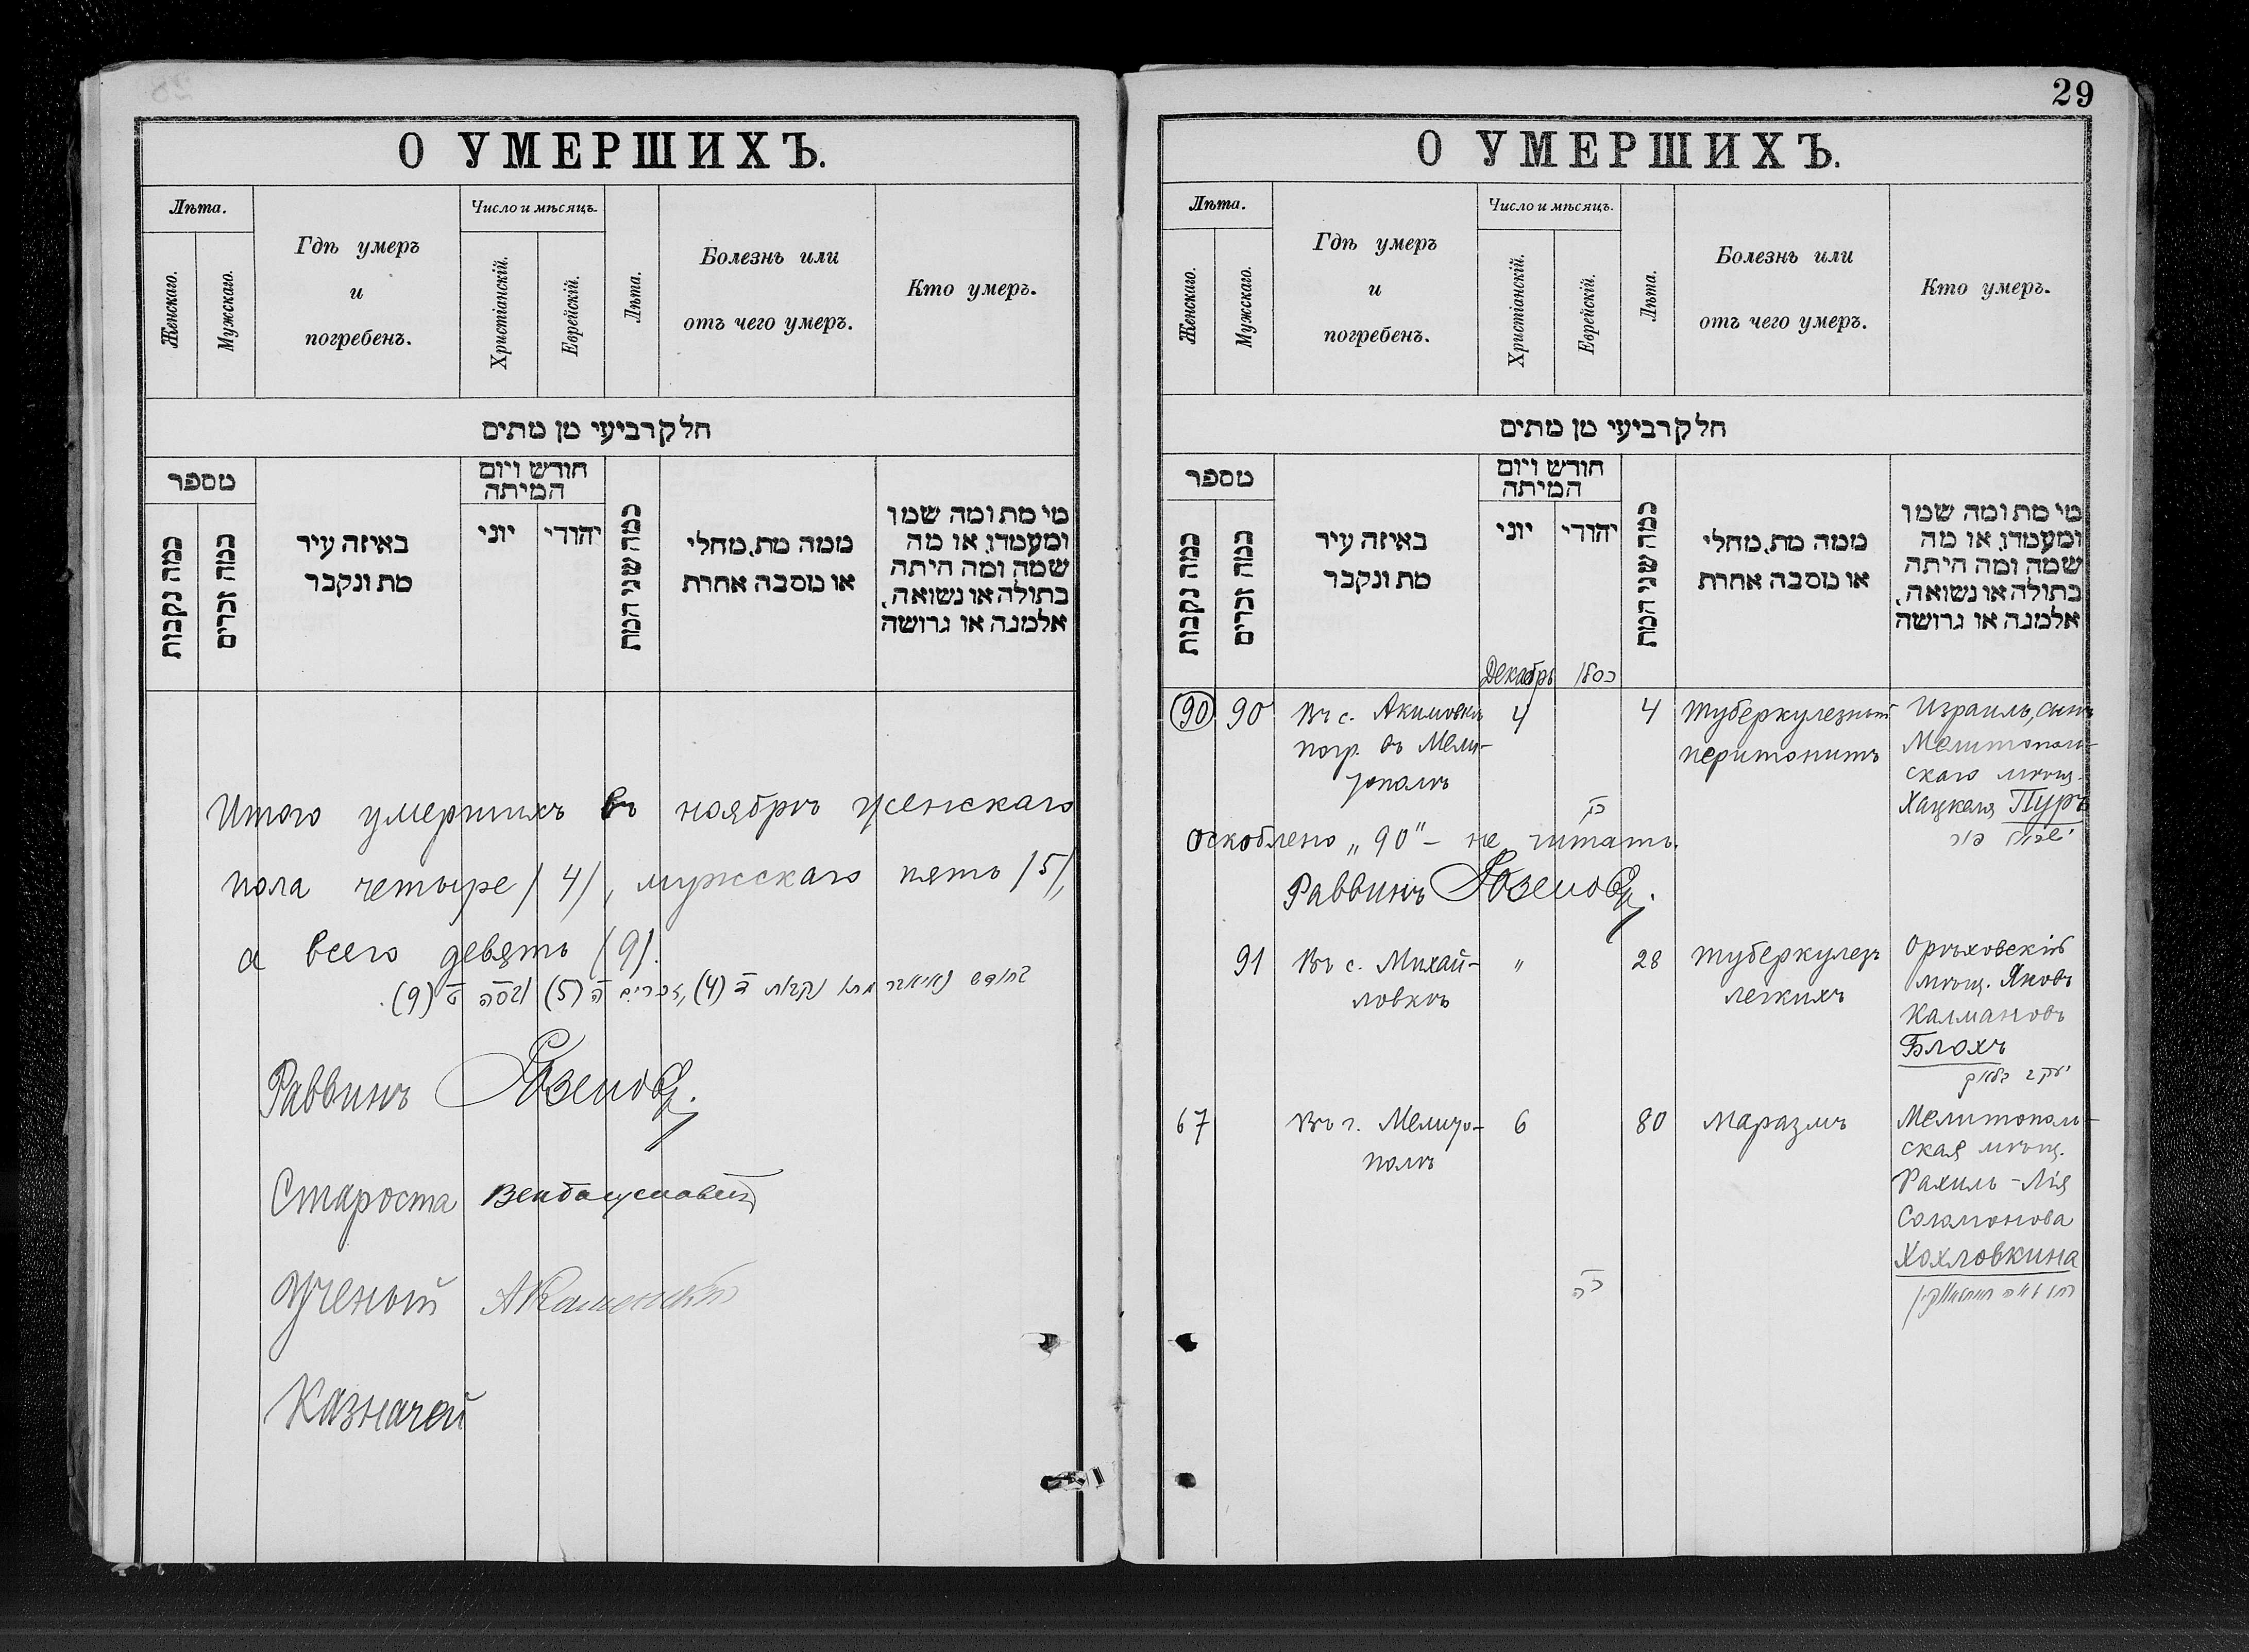 О УМЕРШИХЪ.
Лѣта.
Женскаго.
Мужскаго.
Гдѣ умеръ
и
погребенъ.
Число и мѣсяцъ.
Христіанскій.
Еврейскій.
Лѣта.
Болезнь или
отъ чего умеръ.
Кто умеръ.
חלק רביעי מן מתים
מספר
כמה נקבות
כמה זכרים
באיזה עיר
מת ונקבר
חודש ויום
המיתה
יוני
יהודי
כמה שני המת
ממה מת, מחלי
או מסבה אחרת
מי מת ומה שמו
ומעמדו, או מה
שמה ומה היתה
בתולה או נשואה,
אלמנה או גרושה
Итого умершихъ въ ноябрѣ женскаго
пола четыре /4/, мужскаго пять /5/,
а всего девять /9/.
(4) (5) (9)
Раввинъ
Староста
Ученый АКаменскій
Казначей
29
О УМЕРШИХЪ.
Лѣта.
Женскаго.
Мужскаго.
Гдѣ умеръ
и
погребенъ.
Число и мѣсяцъ.
Христіанскій.
Еврейскій.
Лѣта.
Болезнь или
отъ чего умеръ.
Кто умеръ.
חלק רביעי מן מתים
מספר
כמה נקבות
כמה זכרים
באיזה עיר
מת ונקבר
חודש ויום
המיתה
יוני
יהודי
כמה שני המת
ממה מת, מחלי
או מסבה אחרת
מי מת ומה שמו
ומעמדו, או מה
שמה ומה היתה
בתולה או נשואה,
אלמנה או גרושה
Декабрь כסלו
90 90 Въ с. Акимовкѣ 4 4 Туберкулезный Израиль, сынъ
погр. въ Мели- перитонитъ Мелитополь-
тополѣ скаго мѣщ.
Хацкеля Пуръ
ישראל פור
Оскоблено „90“ – не читать.
Раввинъ
91 Въ с. Михай- „ 28 Туберкулезъ Орѣховскій
ловкѣ легкихъ мѣщ. Яковъ
Калмановъ
Блохъ
יעקב בלאך
67 Въ г. Мелито- 6 80 Маразмъ Мелитополь-
полѣ ская мѣщ.
Рахиль-Лія
Соломонова
Хохловкина
כה